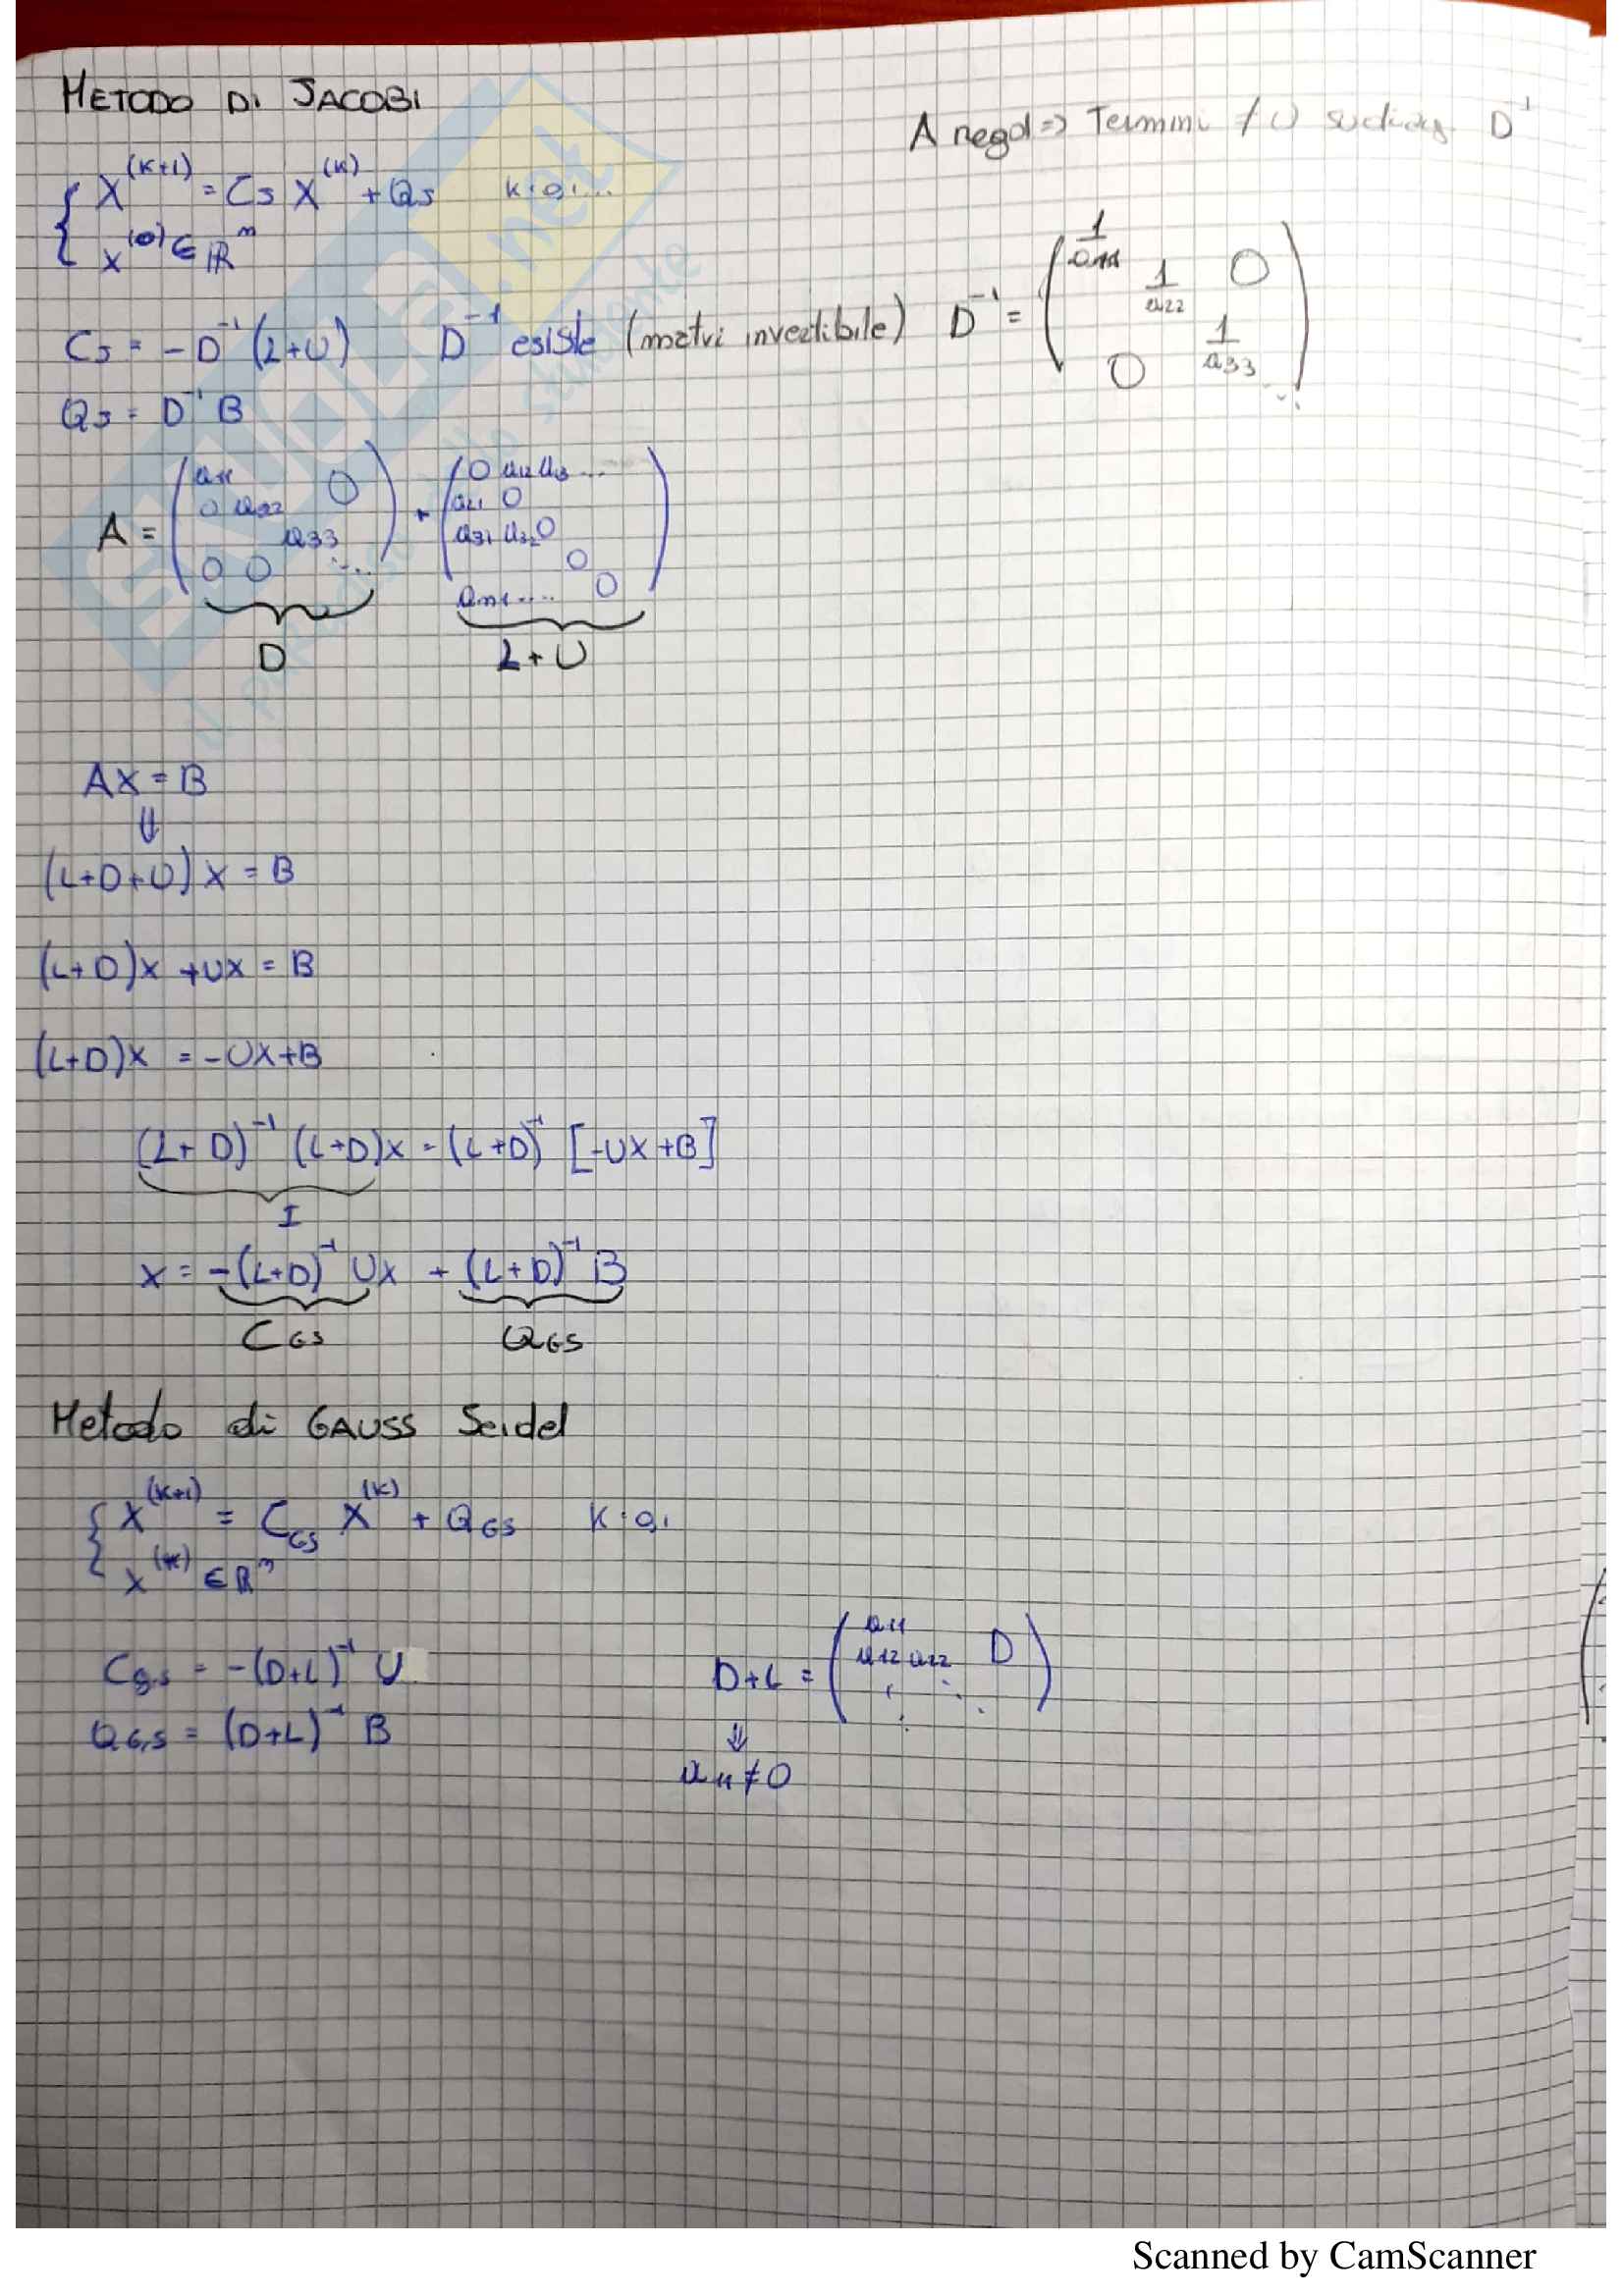 METODO DI JACOBI
A regol => Termini ≠ 0 su diag D⁻¹
{ X^(K+1) = CJ X^(K) + QJ K=0,1...
X^(0) ∈ ℝ^n
CJ = -D⁻¹(L+U) D⁻¹ esiste (matri invertibile) D⁻¹ = ( 1/a11 1/a22 0 0 1/a33 ⋱ )
QJ = D⁻¹ B
A = ( a11 0 0 a22 a33 0 0 ⋱ ) + ( 0 a12 a13 ... a21 0 a31 a32 0 0 an1 .... 0 )
D L+U
AX = B
⇓
(L+D+U) X = B
(L+D)X + UX = B
(L+D)X = -UX+B
(L+D)⁻¹ (L+D)X = (L+D)⁻¹ [-UX+B]
I
X = -(L+D)⁻¹ UX + (L+D)⁻¹ B
CGS QGS
Metodo di GAUSS Seidel
{ X^(K+1) = CGS X^(K) + QGS K=0,1
X^(K) ∈ ℝ^n
CG,S = -(D+L)⁻¹ U
D+L = ( a11 a12 a22 0 ⋮ ⋱ )
QG,S = (D+L)⁻¹ B
⇓
a11 ≠ 0
Scanned by CamScanner